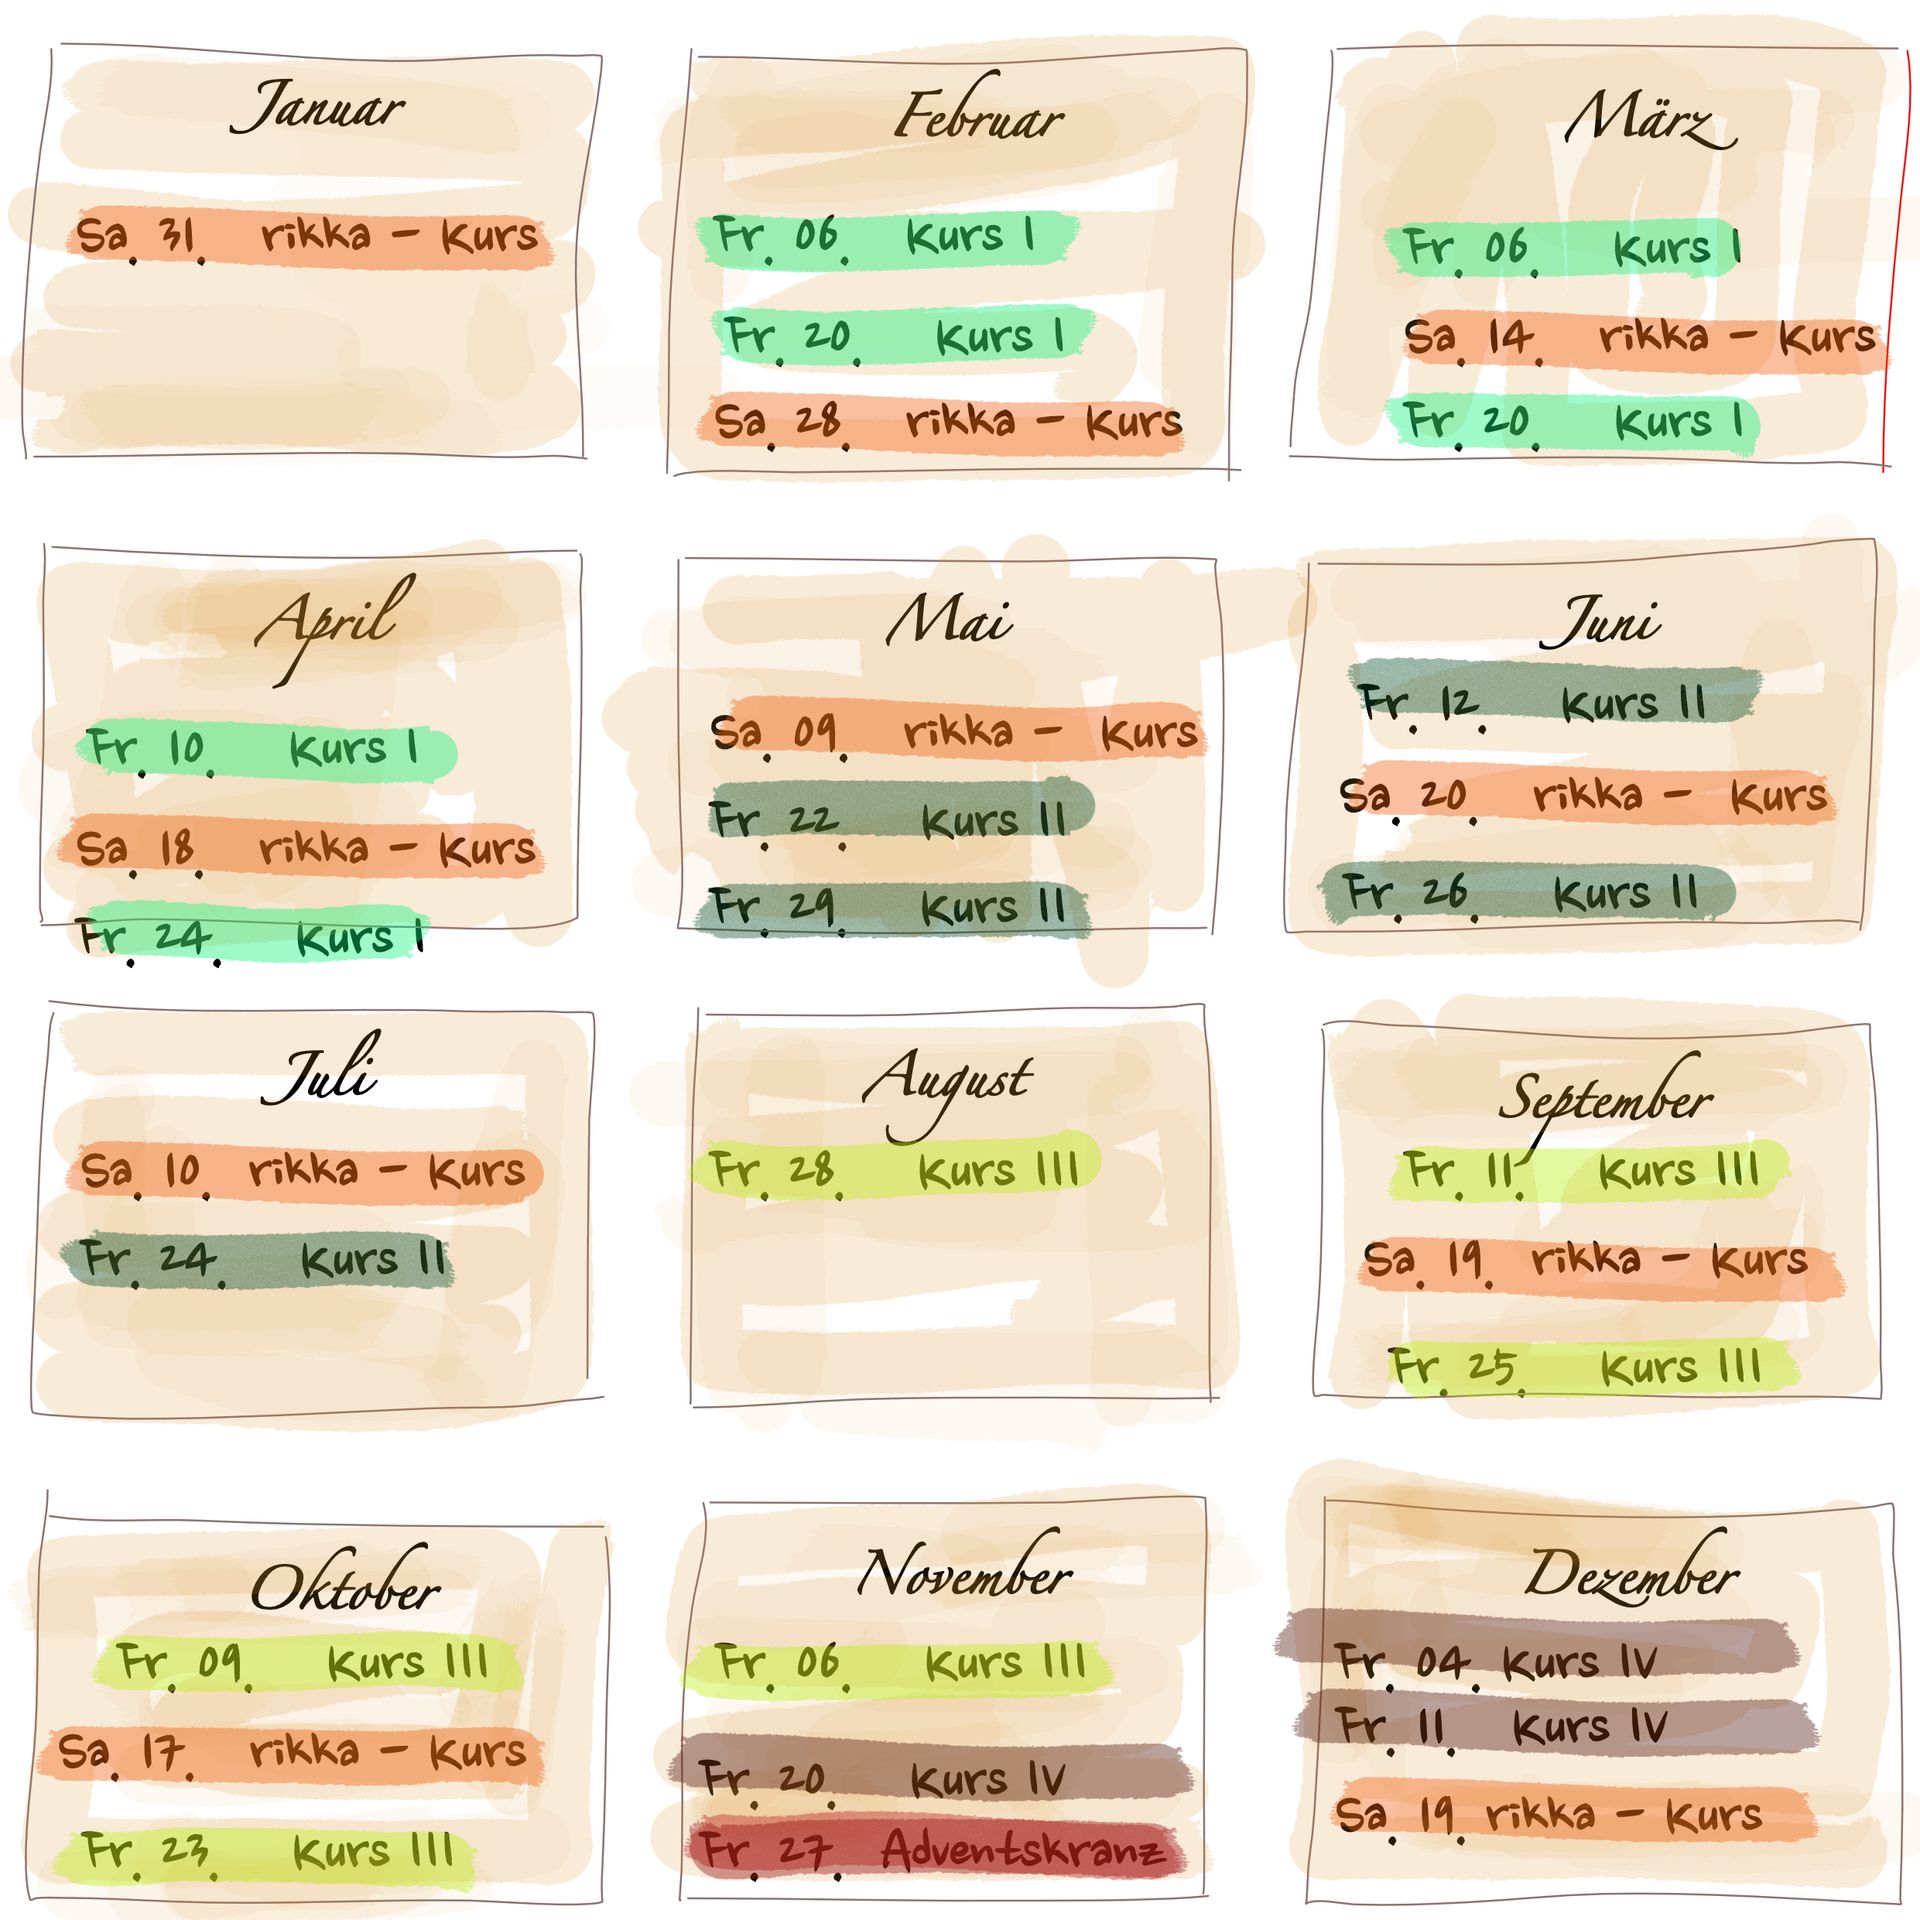 Januar
Sa. 31. rikka - Kurs
Februar
Fr. 06. Kurs I
Fr. 20. Kurs I
Sa. 28. rikka - Kurs
März
Fr. 06. Kurs I
Sa. 14. rikka - Kurs
Fr. 20. Kurs I
April
Fr. 10. Kurs I
Sa. 18. rikka - Kurs
Fr. 24. Kurs I
Mai
Sa. 09. rikka - Kurs
Fr. 22. Kurs II
Fr. 29. Kurs II
Juni
Fr. 12. Kurs II
Sa. 20. rikka - Kurs
Fr. 26. Kurs II
Juli
Sa. 10. rikka - Kurs
Fr. 24. Kurs II
August
Fr. 28. Kurs III
September
Fr. 11. Kurs III
Sa. 19. rikka - Kurs
Fr. 25. Kurs III
Oktober
Fr. 09. Kurs III
Sa. 17. rikka - Kurs
Fr. 23. Kurs III
November
Fr. 06. Kurs III
Fr. 20. Kurs IV
Fr. 27. Adventskranz
Dezember
Fr. 04. Kurs IV
Fr. 11. Kurs IV
Sa. 19. rikka - Kurs